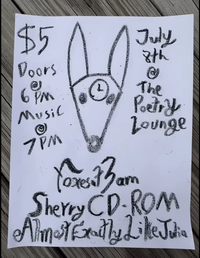 $5
Doors
@
6 PM
Music
@
7 PM
July
8th @
The
Poetry
Lounge
Foxes at 3am
Sherry CD-ROM
Almost Exactly Like Julia